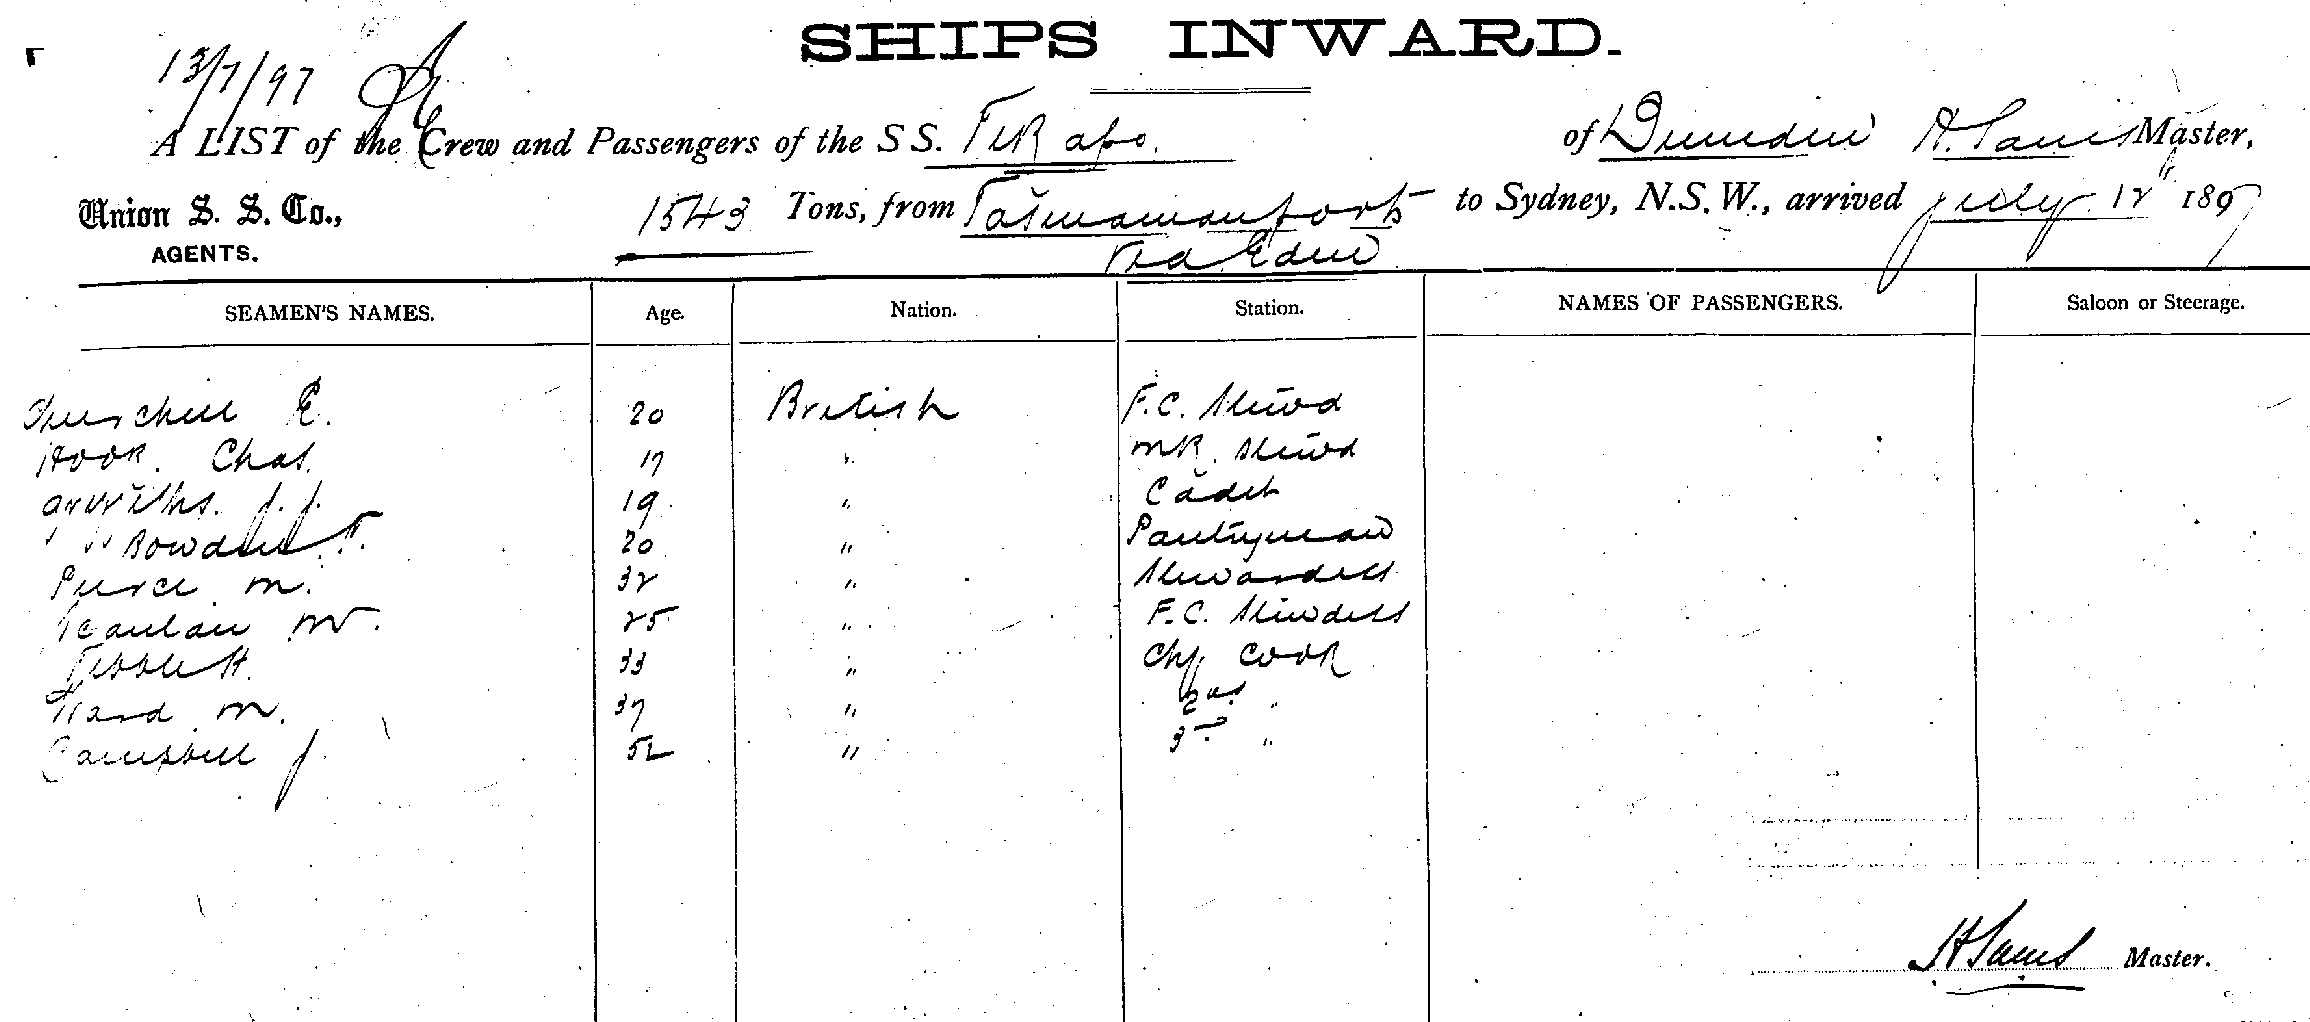 SHIPS INWARD.
13/7/97
A LIST of the Crew and Passengers of the S S. Tekapo. of Dunedin H. Master,
Union S. S. Co., 1543 Tons, from Tasmanian ports to Sydney, N.S.W., arrived July 12 1897
AGENTS. via Eden
SEAMEN'S NAMES. Age. Nation. Station. NAMES OF PASSENGERS. Saloon or Steerage.
Churchill E. 20 British F.C. Stewd
Hook. Chas. 17 " mR. Stewd
Griffiths. J. J. 19. " Cadet
Bowden F. 20 " Pantryman
Pierce m. 32 " Stewardess
25 " F.C. Stewdess
H. 33 " Chf Cook
Ward m. 37 " 2nd "
Campbell J. 52 " 3rd "
H Master.